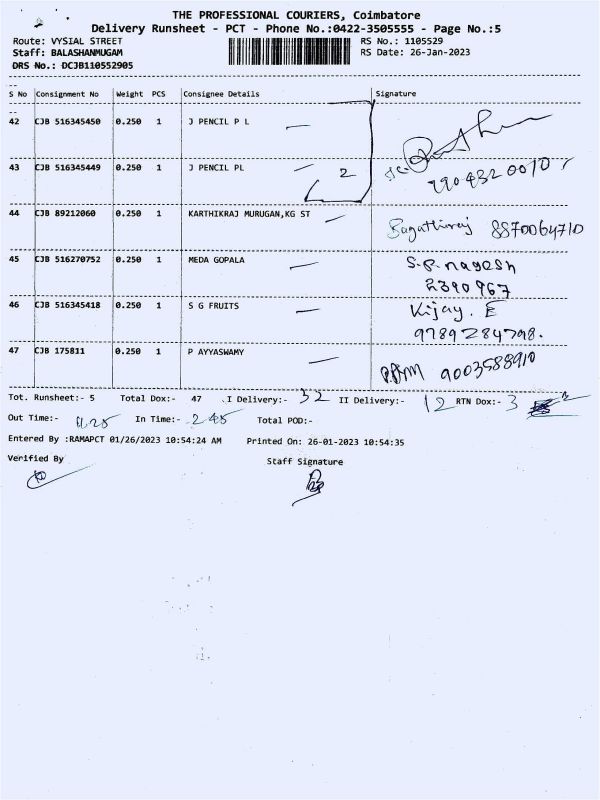 THE PROFESSIONAL COURIERS, Coimbatore
Delivery Runsheet - PCT - Phone No.:0422-3505555 - Page No.:5
Route: VYSIAL STREET RS No.: 1105529
Staff: BALASHANMUGAM RS Date: 26-Jan-2023
DRS No.: DCJB110552905
S No Consignment No Weight PCS Consignee Details Signature
42 CJB 516345450 0.250 1 J PENCIL P L
43 CJB 516345449 0.250 1 J PENCIL PL 2
44 CJB 89212060 0.250 1 KARTHIKRAJ MURUGAN,KG ST 8870064710
45 CJB 516270752 0.250 1 MEDA GOPALA S.R.nagesh
2390967
46 CJB 516345418 0.250 1 S G FRUITS Vijay. E
9789284798.
47 CJB 175811 0.250 1 P AYYASWAMY 9003588910
Tot. Runsheet:- 5 Total Dox:- 47 .I Delivery:- 32 II Delivery:- 12 RTN Dox:- 3
Out Time:- In Time:- 2.45 Total POD:-
Entered By :RAMAPCT 01/26/2023 10:54:24 AM Printed On: 26-01-2023 10:54:35
Verified By Staff Signature